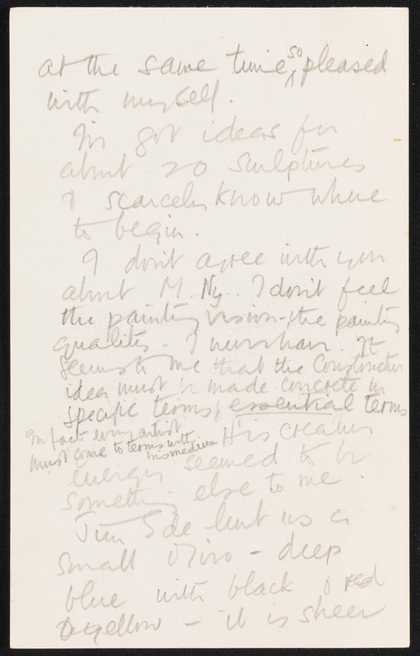 at the same time, so pleased
with myself.
I've got ideas for
about 20 sculptures
I scarcely know where
to begin.
I don't agree with you
about M. Ny.. I don't feel
the painting vision – the painting
qualities. I never have. It
seems to me that the Constructive
idea must be made concrete in
specific terms, essential terms
In fact every artist
must come to terms with
his medium
His creative
energies seemed to be
something else to me.
Jim Ede lent us a
small Miro – deep
blue with black & red
& yellow – it is sheer